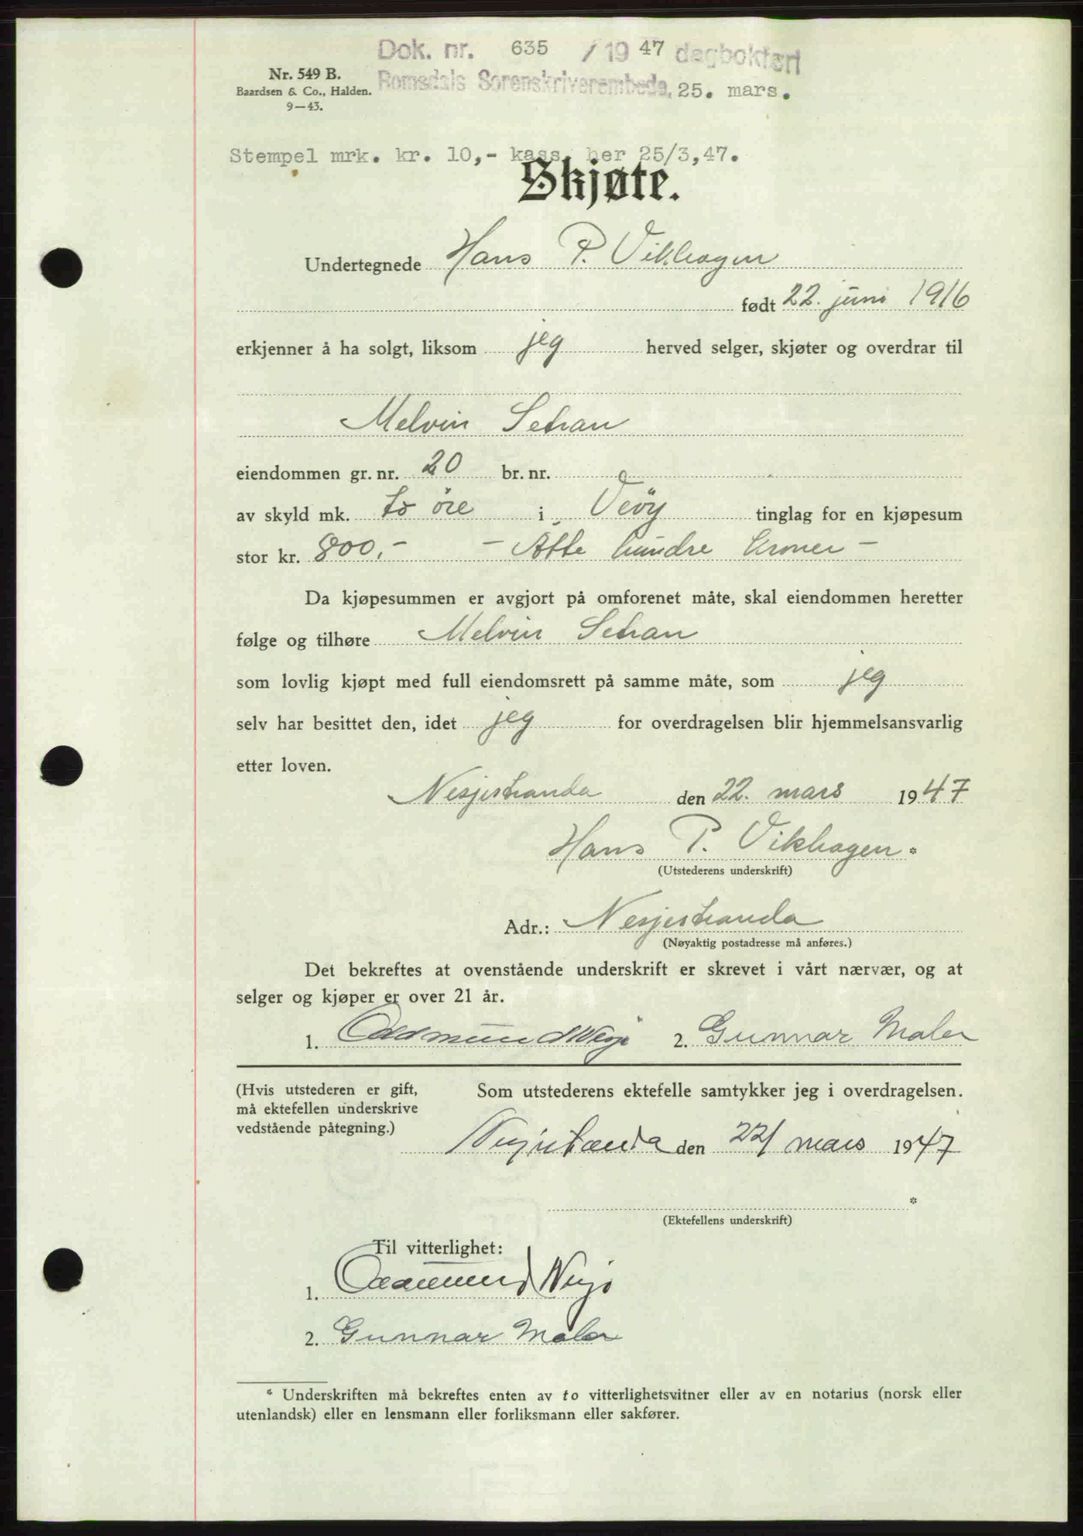 Dok. nr. 635 / 19 47 dagbokført
Nr. 549 B.
Romsdals Sorenskriverembede, 25. mars.
Baardsen & Co., Halden.
9—43.
Stempel mrk. kr. 10,- kass. her 25/3,47.
Skjøte.
Undertegnede Hans P. Vikhagen
født 22. juni 1916
erkjenner å ha solgt, liksom jeg herved selger, skjøter og overdrar til
Melvin Setran
eiendommen gr. nr. 20 br. nr.
av skyld mk. to öre i Veöy tinglag for en kjøpesum
stor kr. 800,- - Åtte hundre kroner -
Da kjøpesummen er avgjort på omforenet måte, skal eiendommen heretter
følge og tilhøre Melvin Setran
som lovlig kjøpt med full eiendomsrett på samme måte, som jeg
selv har besittet den, idet jeg for overdragelsen blir hjemmelsansvarlig
etter loven.
Nesjestranda den 22. mars 1947
Hans P. Vikhagen *
(Utstederens underskrift)
Adr.: Nesjestranda
(Nøyaktig postadresse må anføres.)
Det bekreftes at ovenstående underskrift er skrevet i vårt nærvær, og at
selger og kjøper er over 21 år.
1. Oddmund 2. Gunnar Maler
(Hvis utstederen er gift,
må ektefellen underskrive
vedstående påtegning.)
Som utstederens ektefelle samtykker jeg i overdragelsen.
Nesjestranda den 22/ mars 1947
*
(Ektefellens underskrift)
Til vitterlighet:
1. Oddmund
2. Gunnar Maler
* Underskriften må bekreftes enten av to vitterlighetsvitner eller av en notarius (norsk eller
utenlandsk) eller en lensmann eller forliksmann eller sakfører.